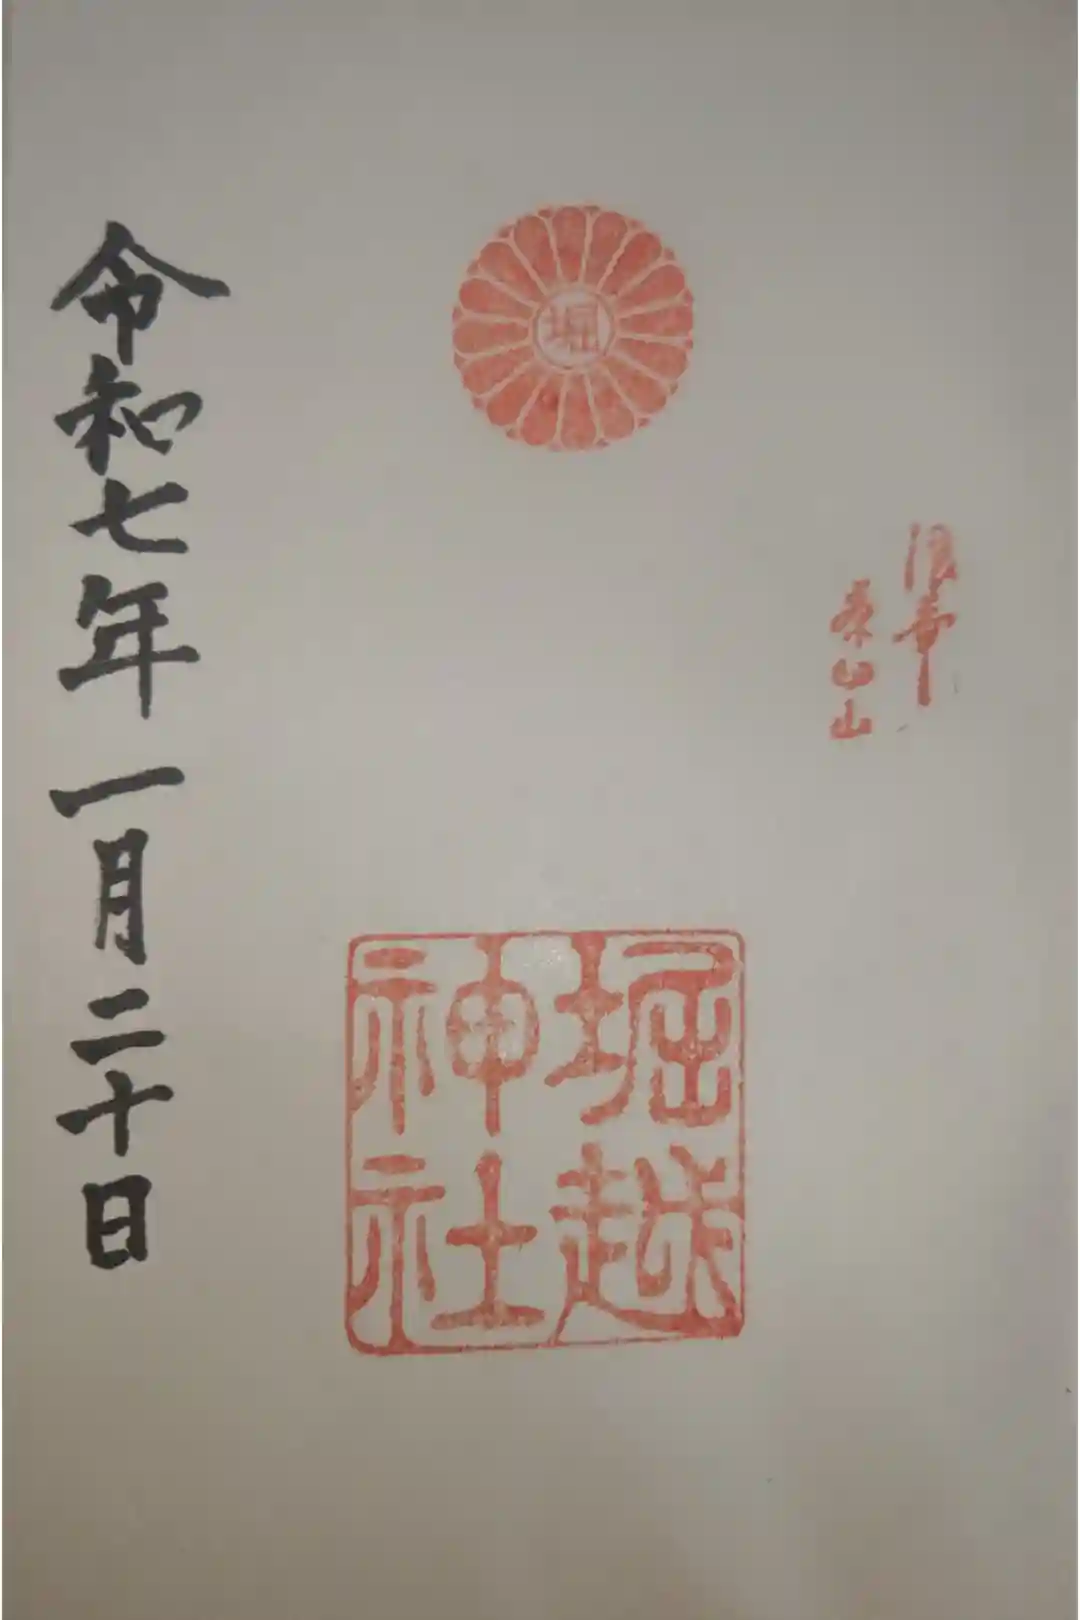 堀
茶臼山
堀越
神社
令和七年一月二十日